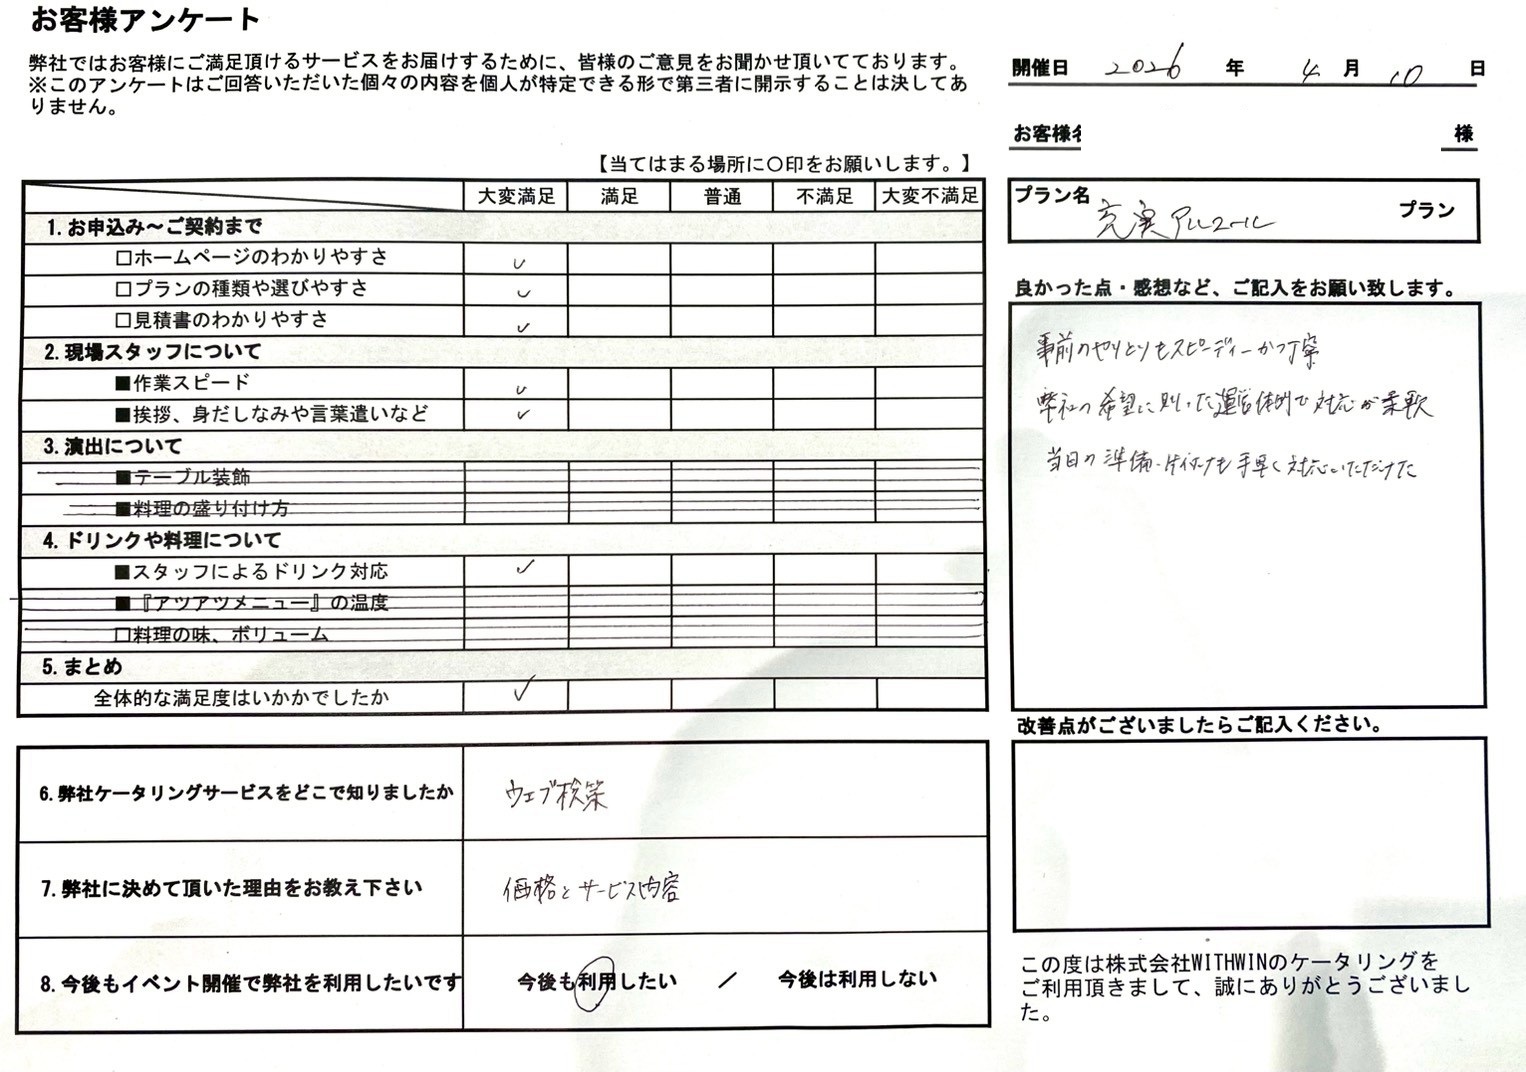 お客様アンケート
弊社ではお客様にご満足頂けるサービスをお届けするために、皆様のご意見をお聞かせ頂いてております。
※このアンケートはご回答いただいた個々の内容を個人が特定できる形で第三者に開示することは決してあ
りません。
開催日 2026 年 4 月 10 日
お客様名 様
【当てはまる場所に〇印をお願いします。】
プラン名 充実アルコール プラン
大変満足 満足 普通 不満足 大変不満足
1. お申込み～ご契約まで
□ホームページのわかりやすさ ✓
□プランの種類や選びやすさ ✓
□見積書のわかりやすさ ✓
2. 現場スタッフについて
■作業スピード ✓
■挨拶、身だしなみや言葉遣いなど ✓
3. 演出について
■テーブル装飾
■料理の盛り付け方
4. ドリンクや料理について
■スタッフによるドリンク対応 ✓
■『アツアツメニュー』の温度
□料理の味、ボリューム
5. まとめ
全体的な満足度はいかかでしたか ✓
6. 弊社ケータリングサービスをどこで知りましたか ウェブ検索
7. 弊社に決めて頂いた理由をお教え下さい 価格とサービス内容
8. 今後もイベント開催で弊社を利用したいです 今後も利用したい ／ 今後は利用しない
良かった点・感想など、ご記入をお願い致します。
事前のやりとりもスピーディーかつ丁寧
弊社の希望に則った運営体制で対応が柔軟
当日の準備・片付けも手早く対応いただけた
改善点がございましたらご記入ください。
この度は株式会社WITHWINのケータリングを
ご利用頂きまして、誠にありがとうございまし
た。